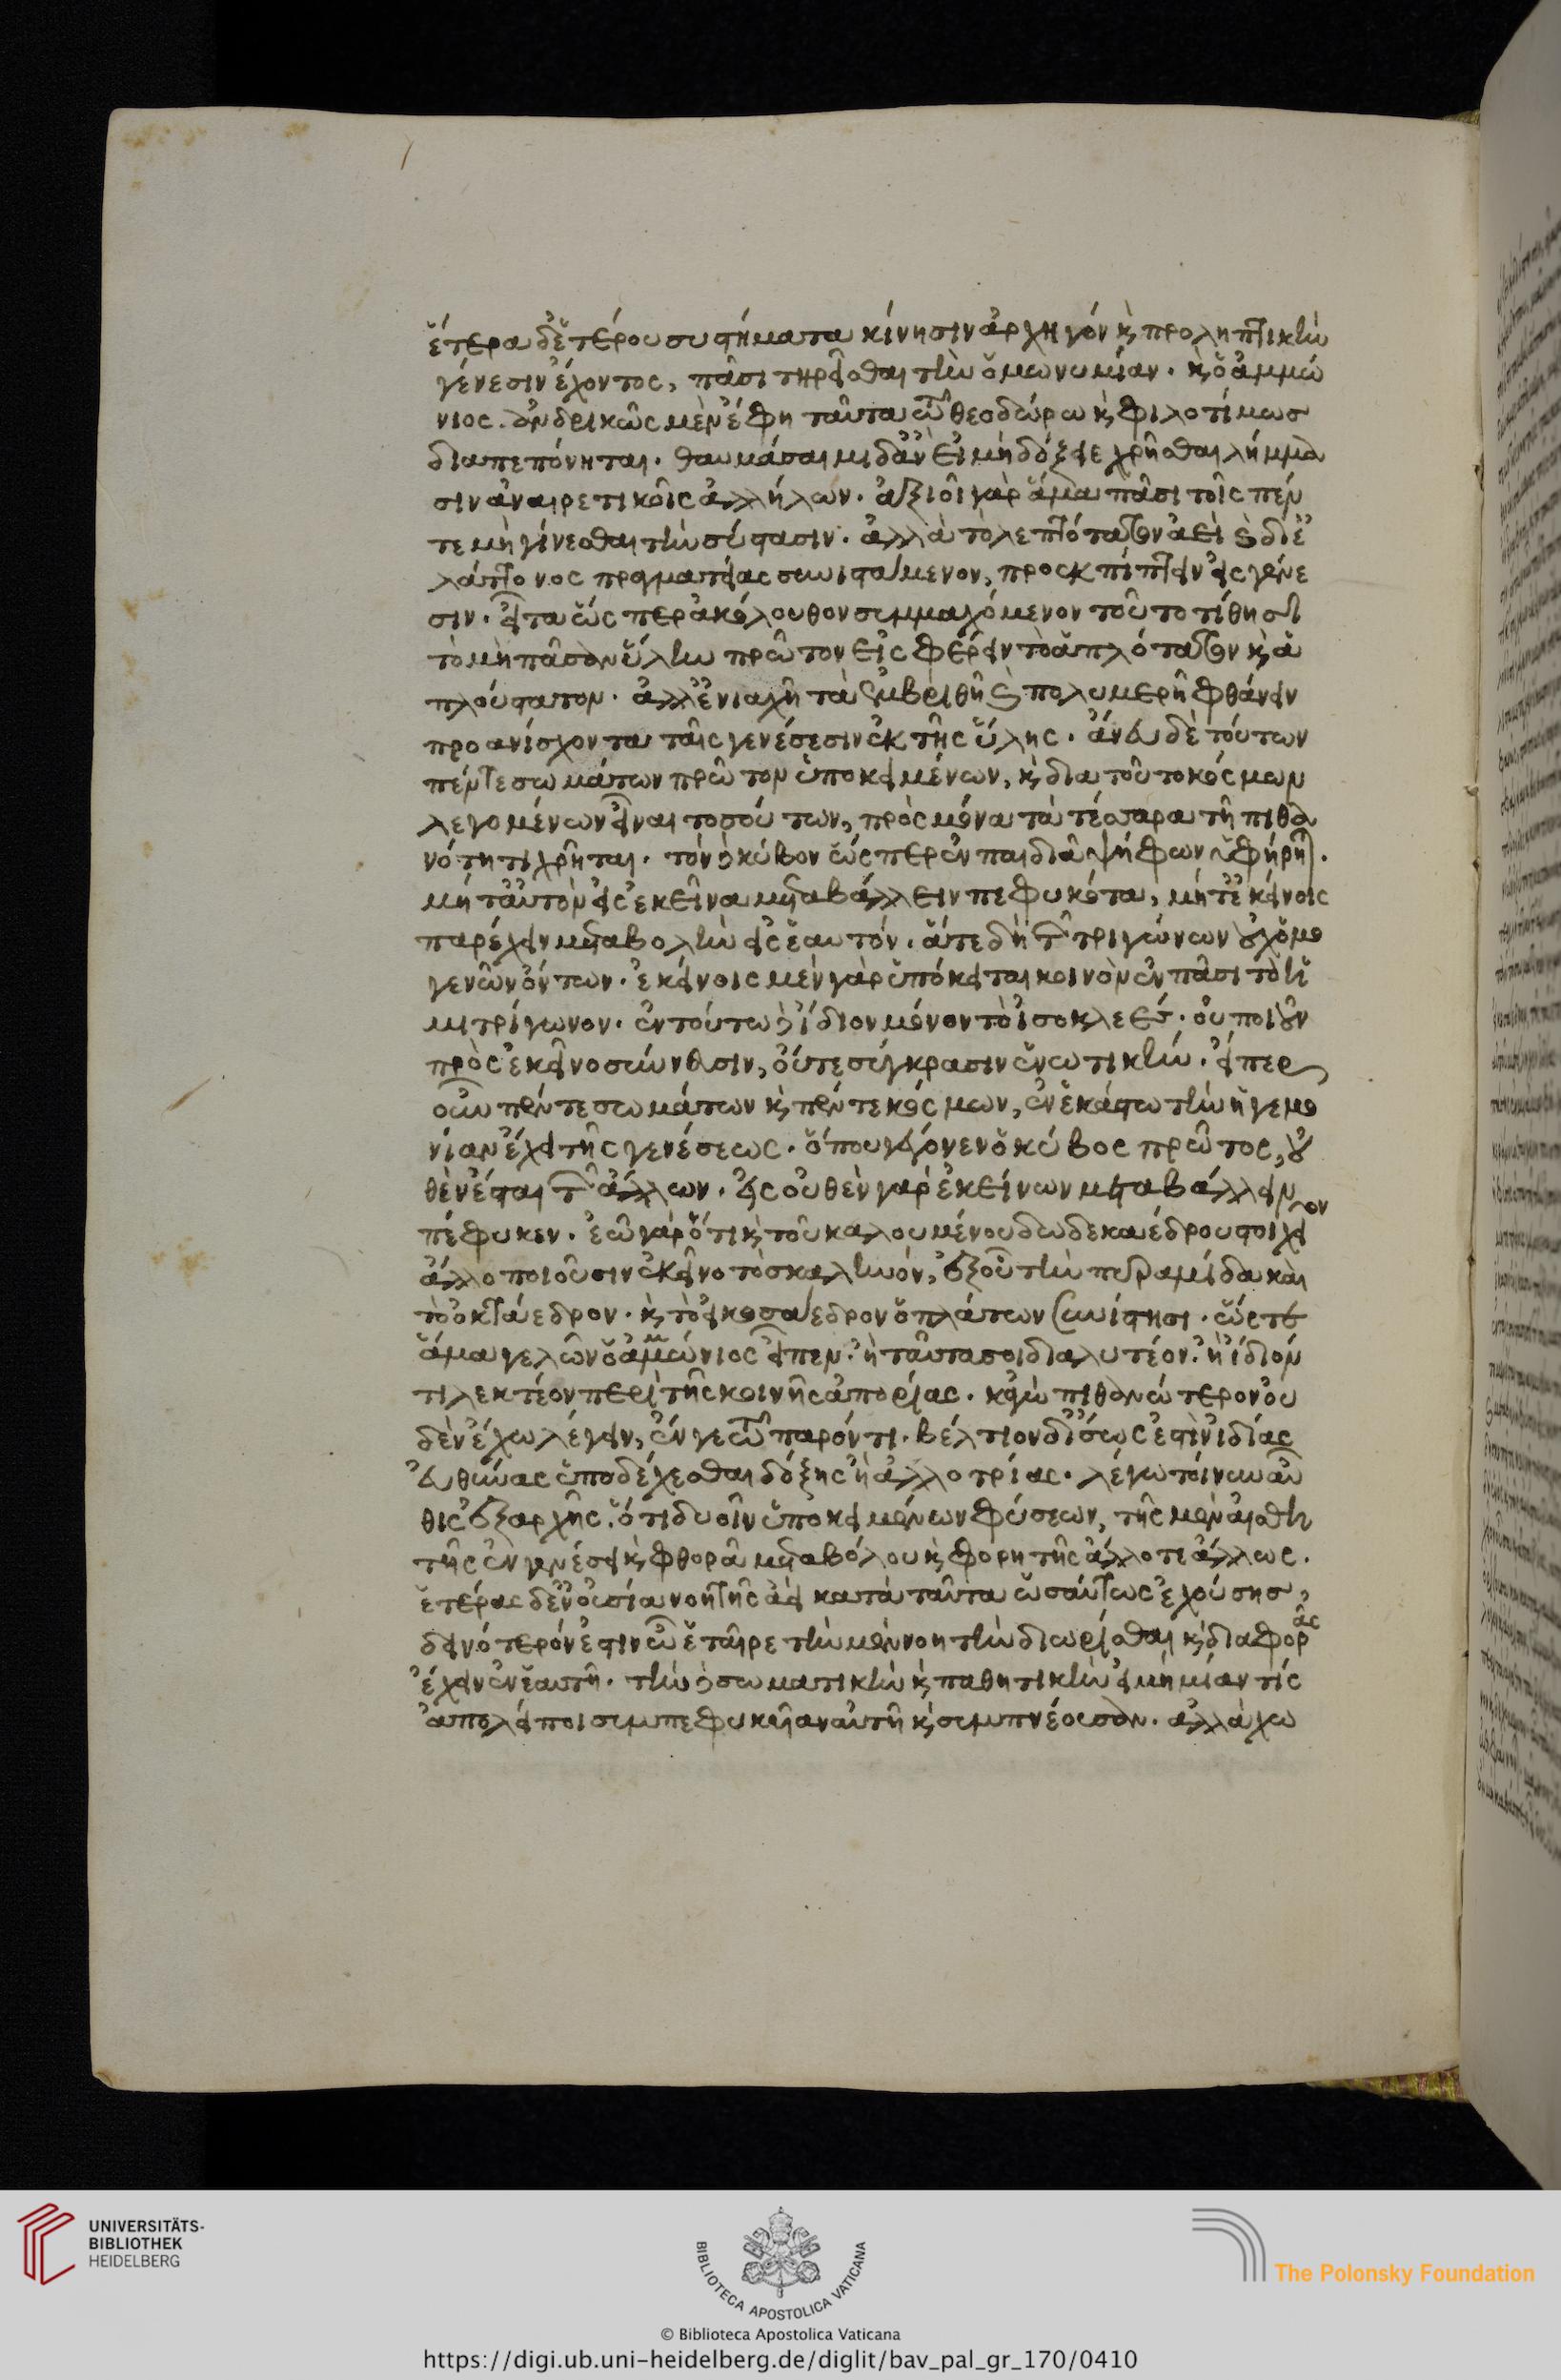 ἕτερα δ' ἑτέρου συστήματα κίνησιν ἀρχηγόν κ̀ προληπτικὴν
γένεσιν ἔχοντος, πᾶσι τηρεῖσθαι τὴν ὁμωνυμίαν. κ̀ ὁ ἀμμώ
νιος. ἀνδρικῶς μὲν ἔφη ταῦτα τῶ θεοδώρω κ̀ φιλοτίμως
διαπεπόνηται. θαυμάσαιμι δ' ἂν εἰ μὴ δόξειε χρῆσθαι λήμμα
σιν ἀναιρετικοῖς ἀλλήλων. ἀξιοῖ γὰρ ἅμα πᾶσι τοῖς πέν
τε μὴ γίνεσθαι τὴν σύστασιν. ἀλλὰ τὸ λεπτότατον ἀεὶ κ̀ δι' ἐ
λάττονος πραγματείας συνιστάμενον, προσεκπίπτειν εἰς γένε
σιν. εἶτα ὥσπερ ἀκόλουθον συμμαχόμενον τοῦτο τίθησι
τὸ μὴ πᾶσαν ὕλην πρῶτον εἰσφέρειν τὸ ἁπλότατον κ̀ ἁ
πλούστατον. ἀλλ' ἐνιαχῆ τὰ ἐμβριθῆ κ̀ πολυμερῆ φθάνειν
προανίσχοντα ταῖς γενέσεσιν ἐκ τῆς ὕλης. ἄνευ δὲ τούτων
πέντε σωμάτων πρῶτον ὑποκειμένων, κ̀ δια τοῦτο κόσμων
λεγομένων εἶναι τοσούτων, πρὸς μόνα τὰ τέσσαρα τῆ πιθα
νότητι χρῆται. τὸν δὲ κύβον ὥσπερ ἐν παιδιᾶ ψήφων ὑφήρη).
μήτ' αὐτὸν εἰς ἐκεῖνα μεταβάλλειν πεφυκότα, μήτ' ἐκείνοις
παρέχειν μεταβολὴν εἰς ἑαυτόν. ἅτε δὴ τῶν τριγώνων οὐχ ὁμο
γενῶν ὄντων. ἐκείνοις μὲν γὰρ ὑπόκειται κοινὸν ἐν πᾶσι τὸ ἡ
μιτρίγωνον. ἐν τούτω δὲ ἴδιον μόνον τὸ ἰσοσκλεές. οὐ ποιοῦν
πρὸς ἐκεῖνο σύννθσιν, οὔτε σύγκρασιν ἑνωτικήν. εἴπερ
οὖν πέντε σωμάτων κ̀ πέντε κόσμων, ἐν ἑκάστω τὴν ἡγεμο
νίαν ἔχει τῆς γενέσεως. ὅπου γέγονεν ὁ κύβος πρῶτος, οὐ
θὲν ἔσται τῶν ἄλλων. εἰς οὐθὲν γὰρ ἐκείνων μεταβάλλειν
πέφυκεν. ἐῶ γὰρ ὅτι κ̀ τοῦ καλουμένου δωδεκαέδρου στοιχεῖον
ἄλλο ποιοῦσιν ἐκεῖνο τὸ σκαληνόν, ἐξ οὗ τὴν πυραμίδα καὶ
τὸ ὀκτάεδρον. κ̀ τὸ εἰκοσάεδρον ὁ πλάτων συνίστησι. ὥστε
ἅμα γελῶν ὁ ἀμμώνιος εἶπεν. ἢ ταῦτα σοι διαλυτέον. ἢ ἴδιόν
τι λεκτέον περὶ τῆς κοινῆς ἀπορίας. κἀγὼ πιθανώτερον οὐ
δὲν ἔχω λέγειν, ἔν γε τῶ παρόντι. βέλτιον δ' ἴσως ἐστὶν ἰδίας
εὐθύνας ὑποδέχεσθαι δόξης ἢ ἀλλοτρίας. λέγω τοίνυν αὖ
θις ἐξαρχῆς. ὅτι δυοῖν ὑποκειμένων φύσεων, τῆς μὲν αἰσθη
τῆς ἐν γενέσει κ̀ φθορᾶ μεταβόλου κ̀ φορητῆς ἄλλοτε ἄλλως.
ἑτέρας δ' ἐν οὐσία νοητῆς ἀεὶ κατὰ ταῦτα ὡσαύτως ἐχούσης,
δεινότερόν ἐστιν ὦ ἑταῖρε τὴν μὲν νοητὴν διωρίσθαι κ̀ διαφορὰς
ἔχειν ἐν ἑαυτῆ. τὴν δὲ σωματικὴν κ̀ παθητικὴν εἰ μὴ μίαν τίς
ἀπολείποι συμπεφυκυῖαν αὐτῆ κ̀ συμπνέουσαν. ἀλλὰ χω
UNIVERSITÄTS-
BIBLIOTHEK
HEIDELBERG
BIBLIOTECA APOSTOLICA VATICANA
The Polonsky Foundation
© Biblioteca Apostolica Vaticana
https://digi.ub.uni-heidelberg.de/diglit/bav_pal_gr_170/0410